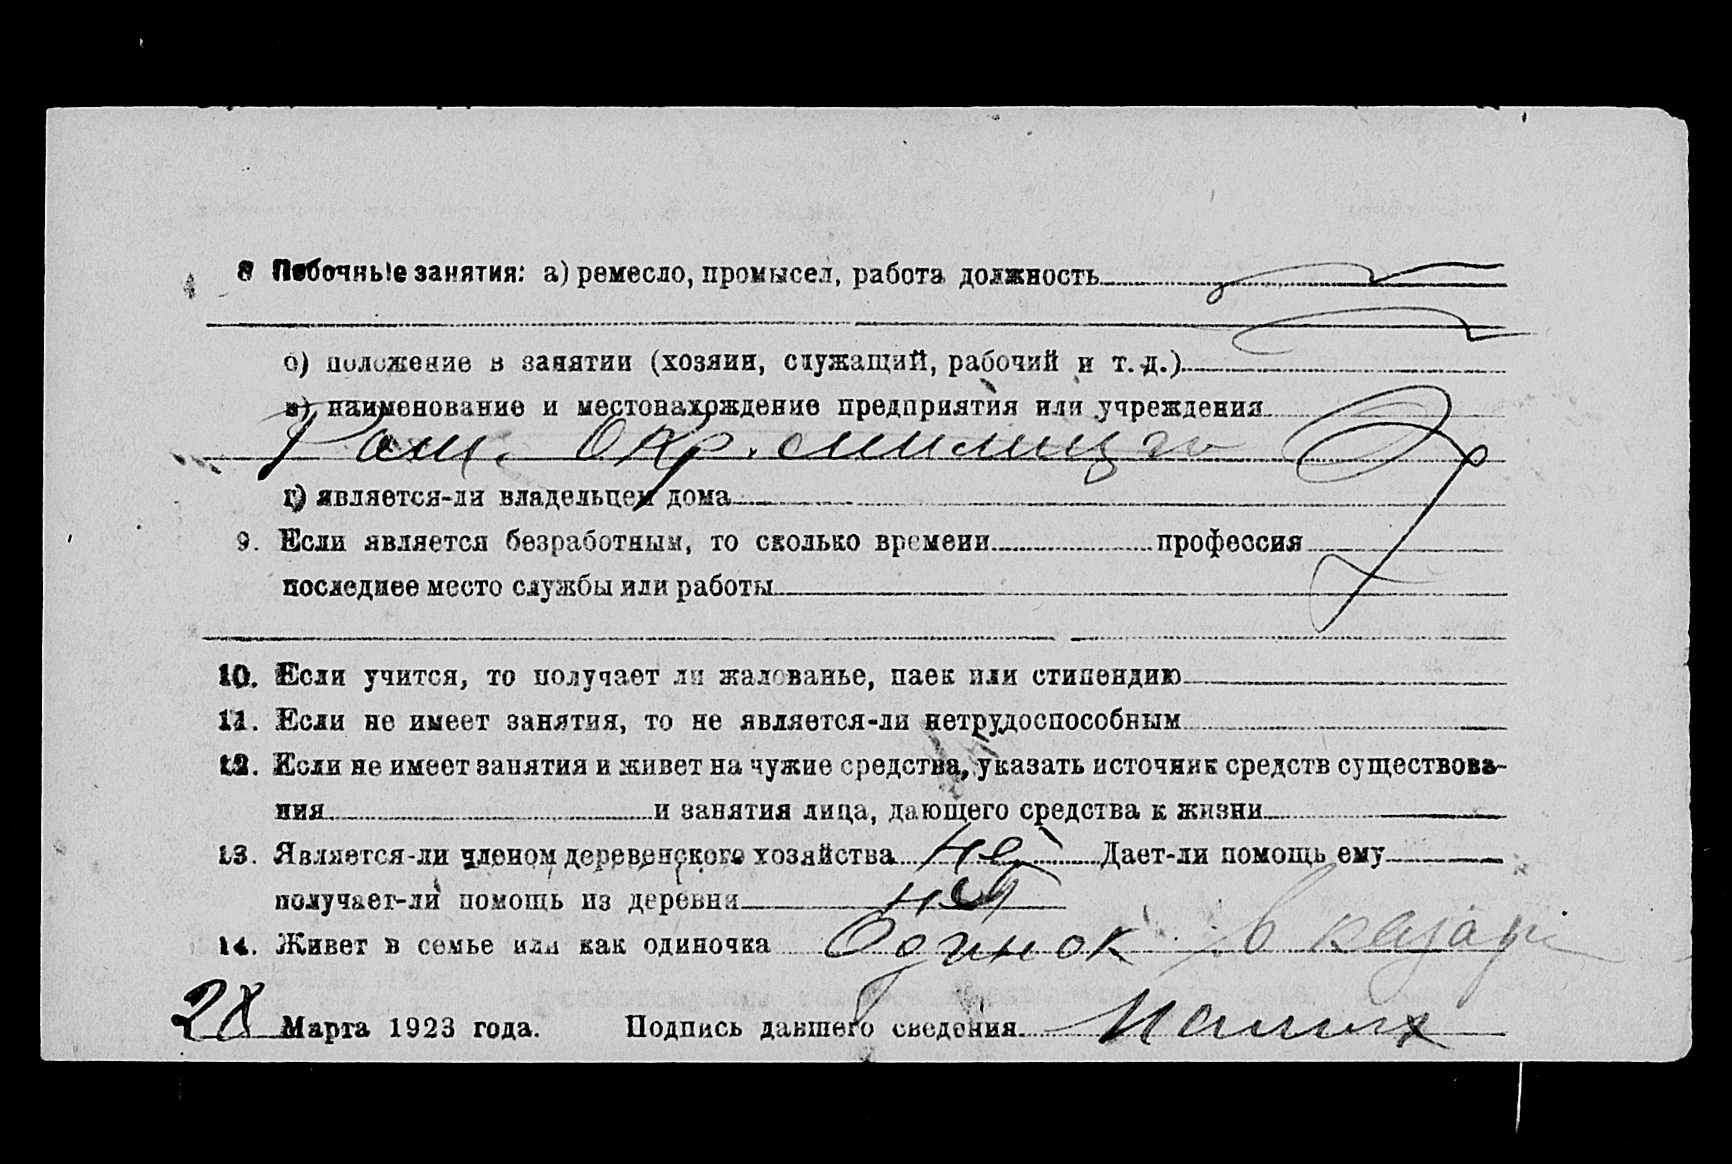 8 Побочные занятия: а) ремесло, промысел, работа должность
б) положение в занятии (хозяин, служащий, рабочий и т. д.)
в) наименование и местонахождение предприятия или учреждения
Окр. милиция
г) является-ли владельцем дома
9. Если является безработным, то сколько времени профессия
последнее место службы или работы
10. Если учится, то получает ли жалованье, паек или стипендию
11. Если не имеет занятия, то не является-ли нетрудоспособным
12. Если не имеет занятия и живет на чужие средства, указать источник средств существова-
ния и занятия лица, дающего средства к жизни
13. Является-ли членом деревенского хозяйства нет Дает-ли помощь ему
получает-ли помощь из деревни нет
14. Живет в семье или как одиночка Одинок в
28 Марта 1923 года. Подпись давшего сведения